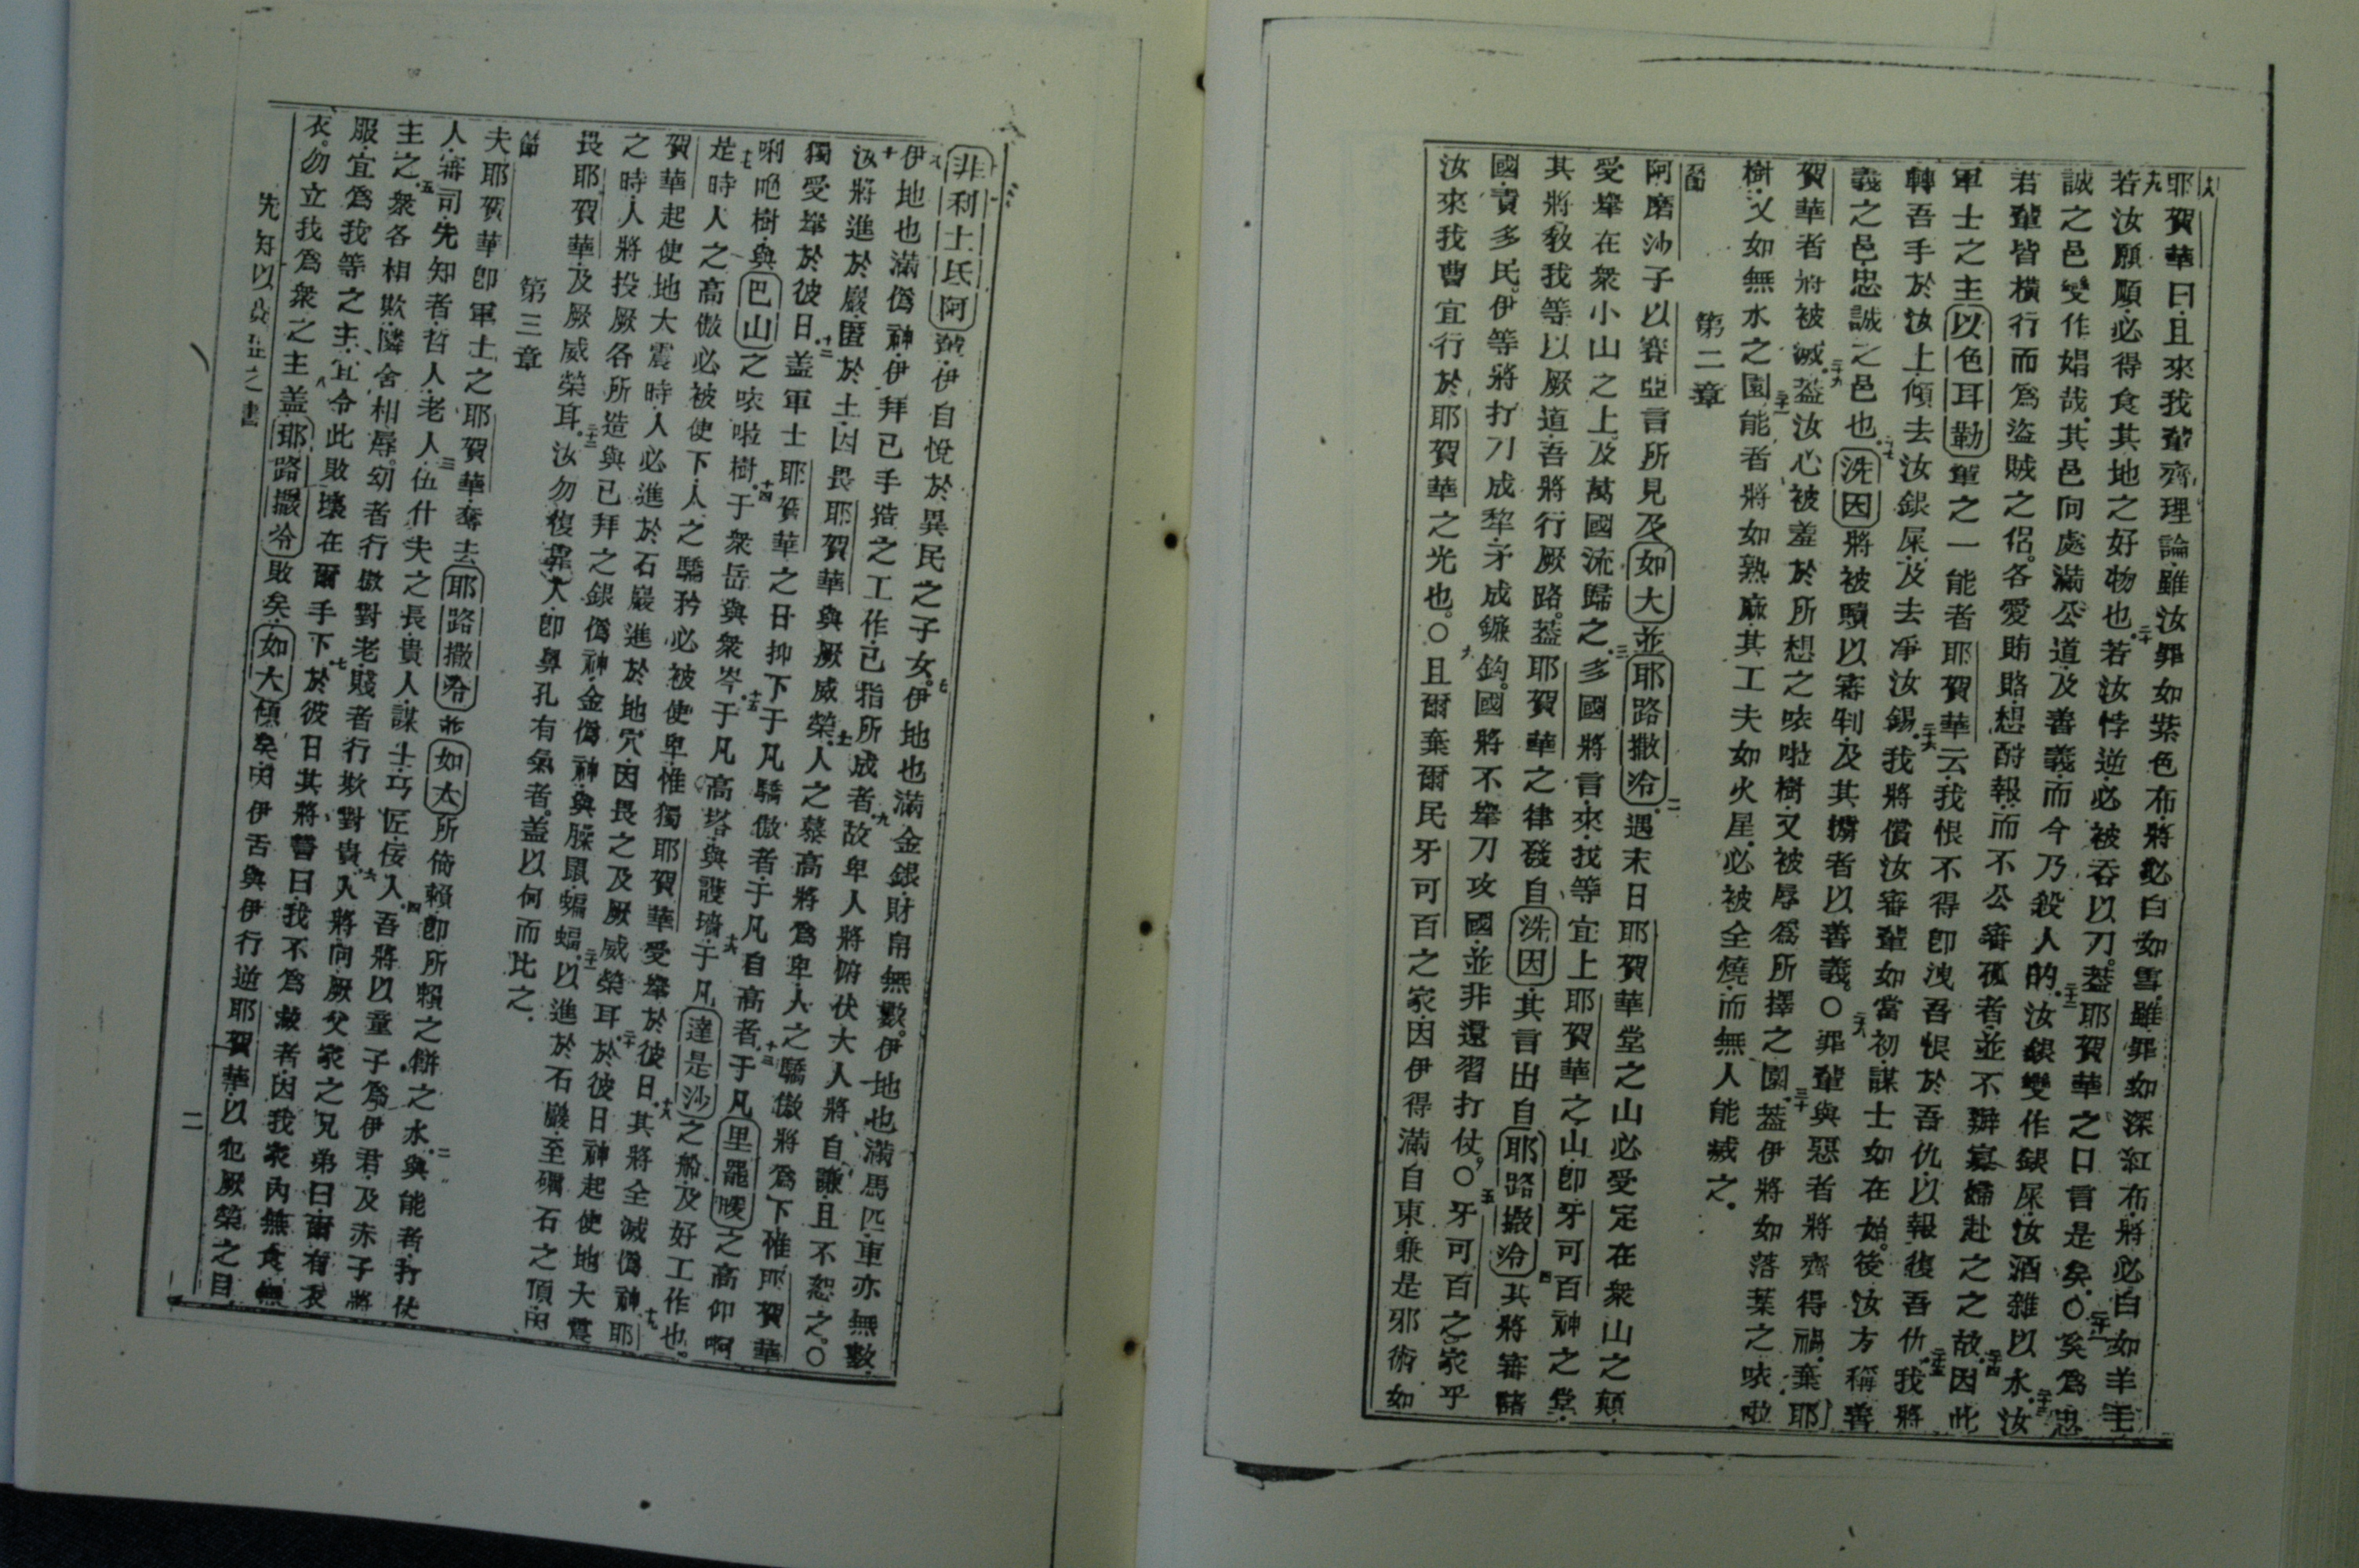 耶賀華曰且來我輩齊理論雖汝罪如紫色布將必白如雪雖罪如深紅布將必白如羊毛
若汝願順必得食其地之好物也若汝悖逆必被吞以刀蓋耶賀華之口言是矣〇奚為忠
誠之邑變作娼哉其邑向處滿公道及善義而今乃殺人的汝銀變作銀屎汝酒雜以水汝
君輩皆橫行而為盜賊之侶各愛賄賂想酧報而不公審孤者並不辦寡婦赴之之故因此
軍士之主以色耳勒軍之一能者耶賀華云我恨不得卽洩吾恨於吾仇以報復吾仇我將
轉吾手於汝上傾去汝銀屎及去凈汝錫我將償汝審輩如當初謀士如在始後汝方稱善
義之邑忠誠之邑也洗因將被贖以審判及其擄者以善義〇罪輩與惡者將齊得禍棄耶
賀華者將被滅蓋汝心被羞於所想之咴啦樹又被辱為所擇之園蓋伊將如落葉之咴啦
樹又如無水之園能者將如熟麻其工夫如火星必被全燒而無人能滅之
第二章
阿磨沙子以賽亞言所見及如大並耶路撒冷遇末日耶賀華堂之山必受定在衆山之顛
受舉在衆小山之上及萬國流歸之多國將言來我等宜上耶賀華之山卽牙可百神之堂
其將教我等以厥道吾將行厥路蓋耶賀華之律發自洗因其言出自耶路撒冷其將審諸
國責多民伊等將打刀成犂矛成鐮鈎國將不舉刀攻國並非還習打仗〇牙可百之家乎
汝來我曹宜行於耶賀華之光也〇且爾棄爾民牙可百之家因伊得滿自東兼是邪術如
非利士氐阿輩伊自悅於異民之子女伊地也滿金銀財帛無數伊地也滿馬匹車亦無數
伊地也滿僞神伊拜已手捁之工作己指所成者故卑人將俯伏大人將自謙且不恕之〇
汝將進於巖匿於土因畏耶賀華與厥威榮人之慕高將為卑人之驕傲將為下惟耶賀華
獨受舉於彼日蓋軍士耶賀華之日抑下于凡驕傲者于凡自高者于凡里罷嗳之高仰啊
唎咟樹與巴山之咴啦樹于衆岳與衆岑于凡高塔與護墻于凡達是沙之船及好工作也
是時人之高傲必被使下人之驕矜必被使卑惟獨耶賀華受舉於彼日其將全滅僞神耶
賀華起使地大震時人必進於石巖進於地穴因畏之及厥威榮耳於彼日神起使地大震
之時人將投厥各所造與已拜之銀僞神金僞神與臊鼠蝙蝠以進於石巖至磵石之頂因
畏耶賀華及厥威榮耳汝勿復靠人卽鼻孔有氣者蓋以何而比之
第三章
夫耶賀華卽軍士之耶賀華奪去耶路撒冷並如大所倚賴卽所賴之餅之水與能者打仗
人審司先知者哲人老人伍什夫之長貴人謀士巧匠佞人吾將以童子為伊君及赤子將
主之衆各相欺隣舍相辱幼者行傲對老賤者行欺對貴人將向厥父家之兄弟曰爾有衣
服宜為我等之主宜令此敗壞在爾手下於彼日其將誓曰我不為救者因我家內無食無
衣勿立我為衆之主蓋耶路撒冷敗矣如大傾矣因伊舌與伊行逆耶賀華以犯厥榮之目
先知以賽亞之書
二